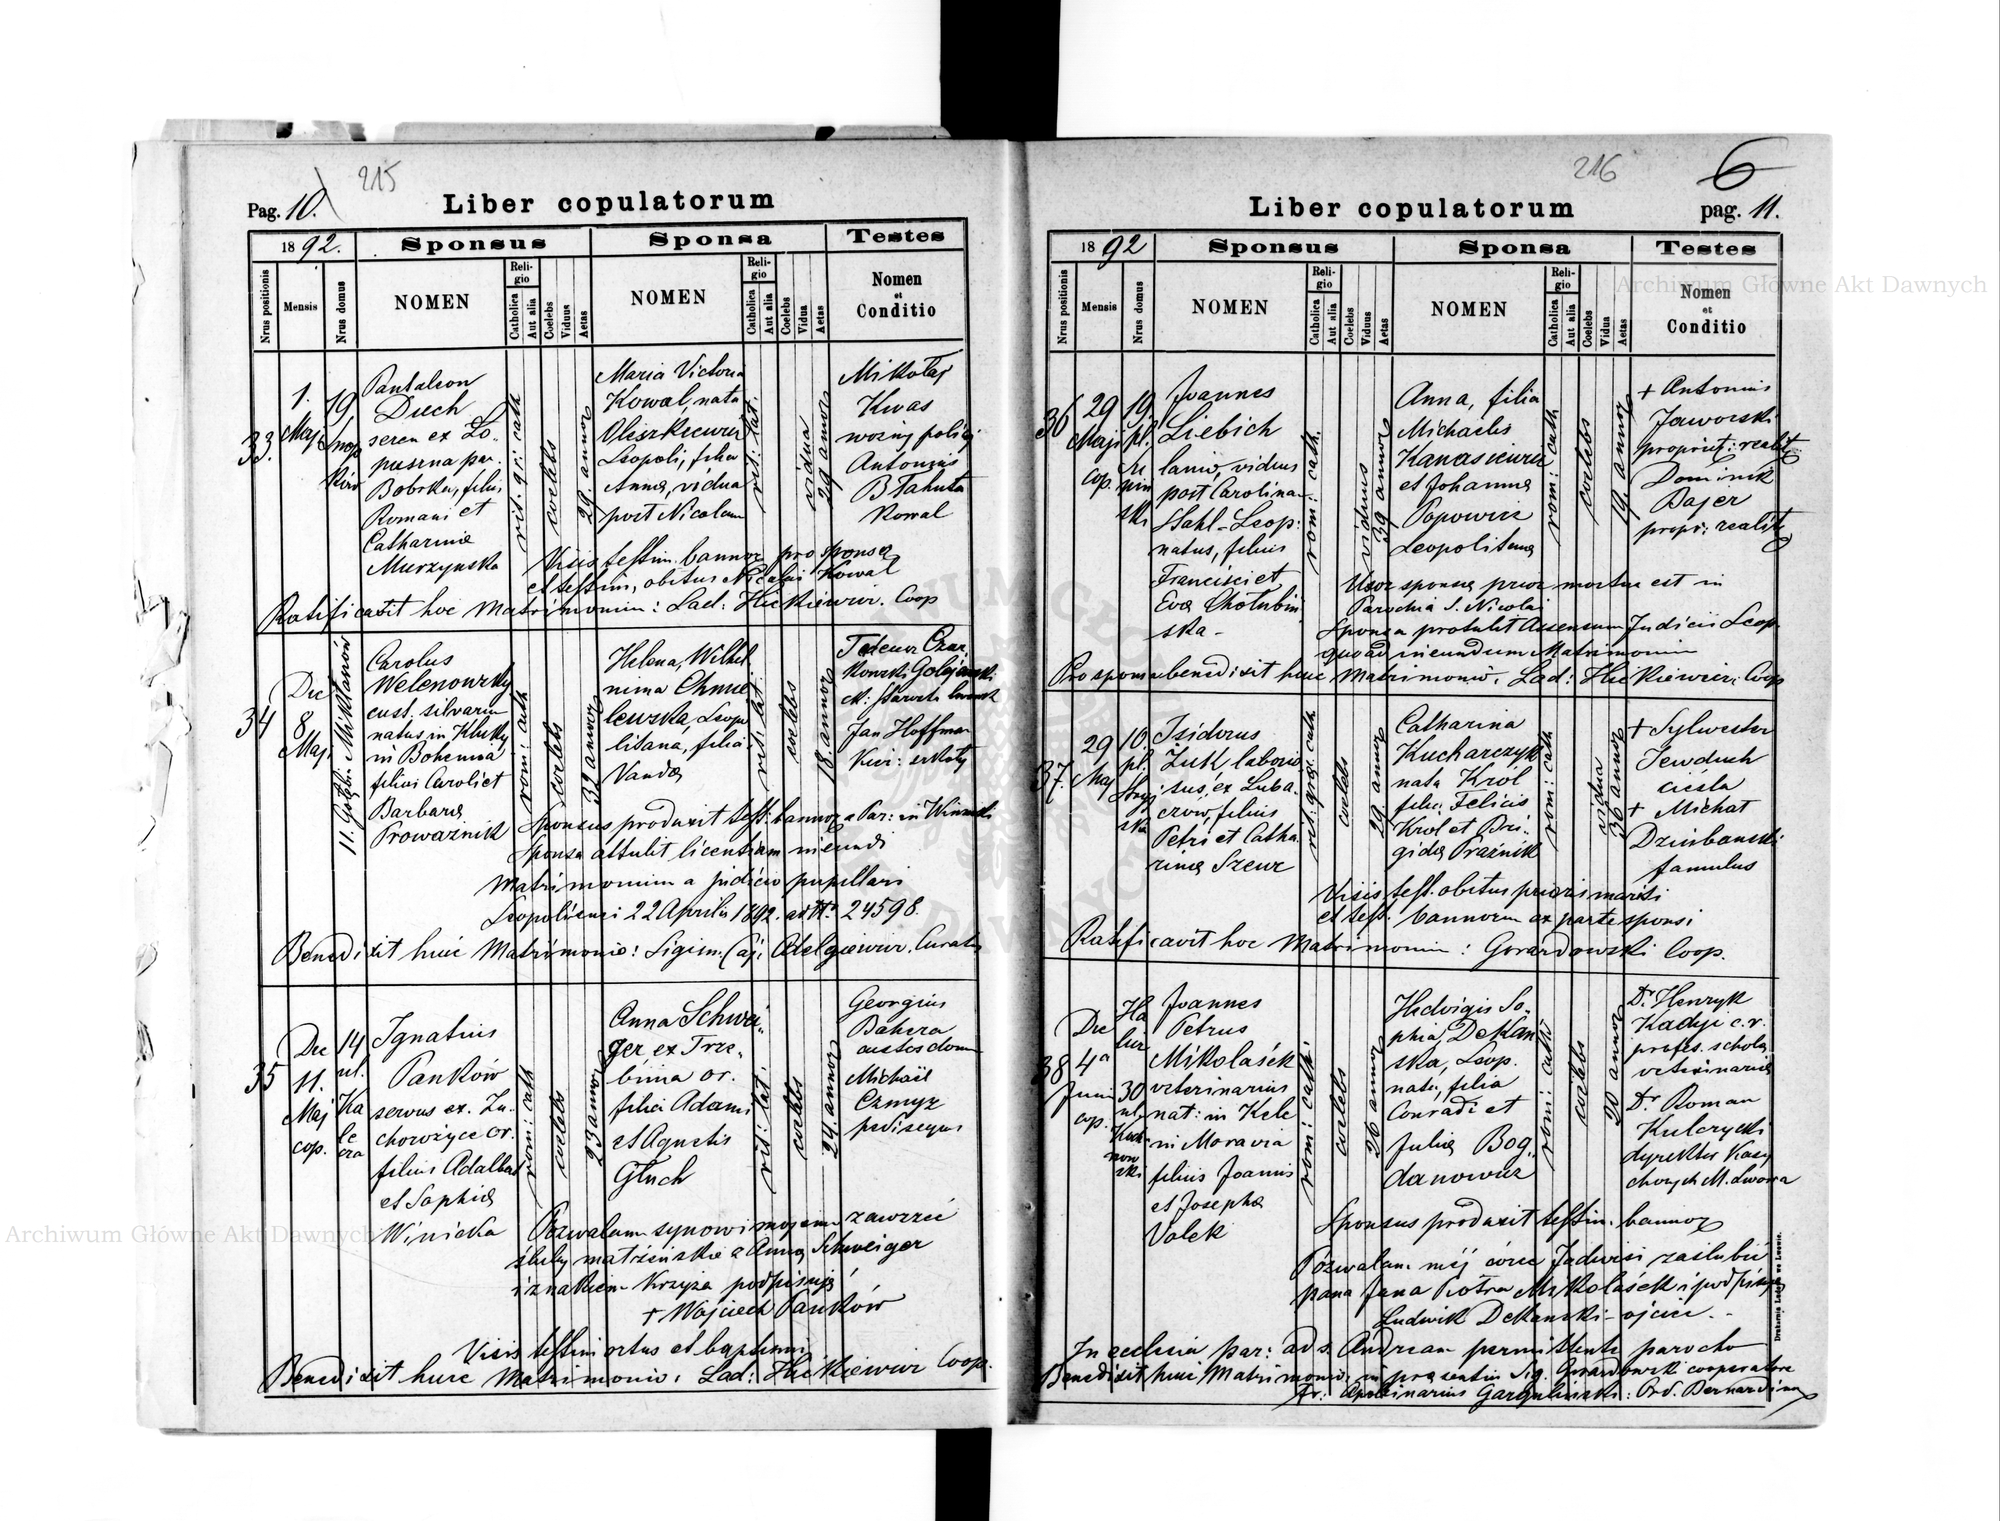 215
Pag. 10.
Liber copulatorum
1892.
Sponsus
Sponsa
Testes
Nrus positionis
Mensis
Nrus domus
NOMEN
Religio
Catholica
Aut alia
Coelebs
Viduus
Aetas
NOMEN
Religio
Catholica
Aut alia
Coelebs
Vidua
Aetas
Nomen
et
Conditio
33.
1.
Maj
19
Pantaleon
Duch
ex Lo-
puszna par.
Bobrka, filius
Romani et
Catharinae
Murzynska
rit. gr: cath
coelebs
29. annor
Maria Victoria
Kowal, nata
Oliszkiewicz
Leopoli, filia
Anna, vidua
post Nicolaum
rit: lat.
vidua
29 annor
Mikołaj
Kwas
woźny policyj
Antonius
Błahuta
Kowal
Visis testim. bannor pro sponsa
et testim, obitus Nicolai Kowal
Ratificavit hoc Matrimonium: Lad: Hickiewicz. Coop
34
Die
8
Maj.
11. Gołęb. Mikłasów
Carolus
Welenowsky
cust. silvarum
natus in Klusky
in Bohemia
filius Caroli et
Barbara
Prowaznik
rom: cath
coelebs
32 annor
Helena, Wilhel
mina Chmie
lewska, Leopo
litana, filia
Vanda
rit: lat.
coelebs
18. annor
Jan Hoffman
Sponsus produxit test: bannor a Par: in Winniki
Sponsa attulit licentiam ineundi
Matrimonium a judicio pupillari
Leopoliensi 22 Aprilis 1892. ad N: 24598.
Benedixit huic Matrimonio: Sigism. Caj. Odelgiewicz. Curatus
35
Die
11.
Maj
cop.
14
ul.
Ka
le
cza
Ignatius
Panków
servus ex. Zu-
chorzyce or.
filius Adalberti
et Sophia
Winicka
rom: cath
coelebs
23 annor
Anna Schwei-
ger, ex Trze-
binia or.
filia Adami
et Agnetis
Gluch
rit: lat.
coelebs
24. annor
Georgius
Bahera
custos domu
Michaël
Czmyr
pedisequus
Pozwalam synowi mojemu zawrzeć
śluby małżeńskie z Anną Schweiger
i znakiem Krzyża podpisuję
+ Wojciech Panków
Visis testim ortus et baptismi
Benedixit huic Matrimonio: Lad: Hickiewicz Coop.
216
6
Liber copulatorum
pag. 11.
1892
Sponsus
Sponsa
Testes
Nrus positionis
Mensis
Nrus domus
NOMEN
Religio
Catholica
Aut alia
Coelebs
Viduus
Aetas
NOMEN
Religio
Catholica
Aut alia
Coelebs
Vidua
Aetas
Nomen
et
Conditio
36
29
Maji
cop.
19.
pl.
Joannes
Liebich
lanio, viduus
post Carolina
Stahl-Leop:
natus, filius
Francisci et
Eva Chołubin
ska -
rom: cath.
viduus
39 annor
Anna, filia
Michaelis
Kanasiewicz
et Johanna
Popowicz
Leopolitana
rom: cath
coelebs
19. annor
+ Antonius
Jaworski
propriet: realit
Dominik
Bajer
propr: realit
Uxor sponsi prior mortua est in
Parochia S. Nicolai
Sponsa protulit Assensum Judicii Leop.
quoad ineundum Matrimonium
Pro sponsa benedixit huic Matrimonio. Lad: Hickiewicz. Coop
37.
29
Maj
10.
pl.
Stryj
ska
Isidorus
Zuk laborio
sus, ex Luba-
czów, filius
Petri et Catha
rina Szewc
rit. gr. cath
coelebs
29. annor
Catharina
Kucharczyk
nata Krol
filia Felicis
Król et Bri-
gida Praźnik
rom: cath
vidua
36 annor
+ Sylwester
Jewduch
cieśla
+ Michał
Dzinbanski
famulus
Visis test. obitus prioris mariti
et test. bannorum ex parte sponsi
Ratificavit hoc Matrimonium: Gerardowski Coop.
38
Die
4a
Junii
cop.
Ha
licz
30
ul.
Koch
now
ski
Joannes
Petrus
Mikolašek
veterinarius
nat: in Kele
in Moravia
filius Joannis
et Josepha
Valek
rom: cath.
coelebs
26 annor
Hedvigis So-
phia, Dekan
ska, Leop.
nata, filia
Conradi et
Julia Bog-
danowicz
rom: cath
coelebs
20 annor
Dr Henryk
Kadyi c. r.
profes. schola
veterinaria
Dr Roman
Kulczycki
dyrektor Kasy
chorych M. Lwowa
Sponsus produxit testim. bannor
Pozwalam mej córce Jadwisi zaślubić
pana Jana Piotra Mikolašek i podpisuję
Ludwik Dekanski - ojciec -
In ecclesia par: ad s. Andream permittente parocho
Benedixit huic Matrimonio, in praesentia Sig. Gerardowski cooperatore
Fr: Apolinarius Gargulinski: Ord. Bernardinor
Drukarnia Ludowa we Lwowie.
Archiwum Główne Akt Dawnych
Archiwum Główne Akt Dawnych